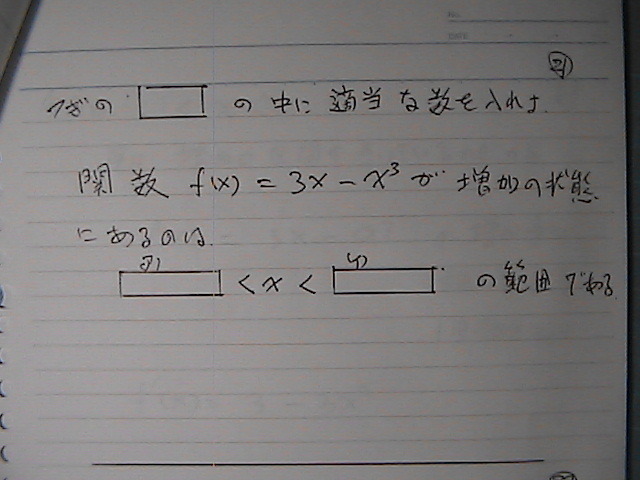 NO.
DATE
つぎの □ の中に 適当な数を入れよ.
関数 f(x) = 3x - x³ が 増加の状態
にあるのは.
□ < x < □ の範囲である.